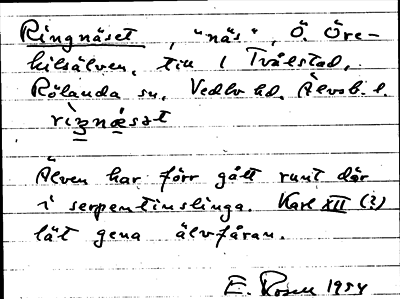 Ringnäset, "näs", Ö. Öre-
kilsälven, till 1 Tvålstad,
Rölanda sn, Vedbo hd, Älvsb. l.
rìŋnæ̀sət
Älven har förr gått runt där
i serpentinslinga. Karl XII (?)
lät gena älvfåran.
E. Rosell 1954